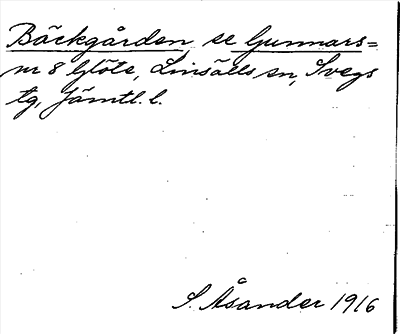 Bäckgården, se Gunnars=
nr 8 Glöte, Linsälls sn, Svegs
tg, Jämtl. l.
S. Åsander 1916